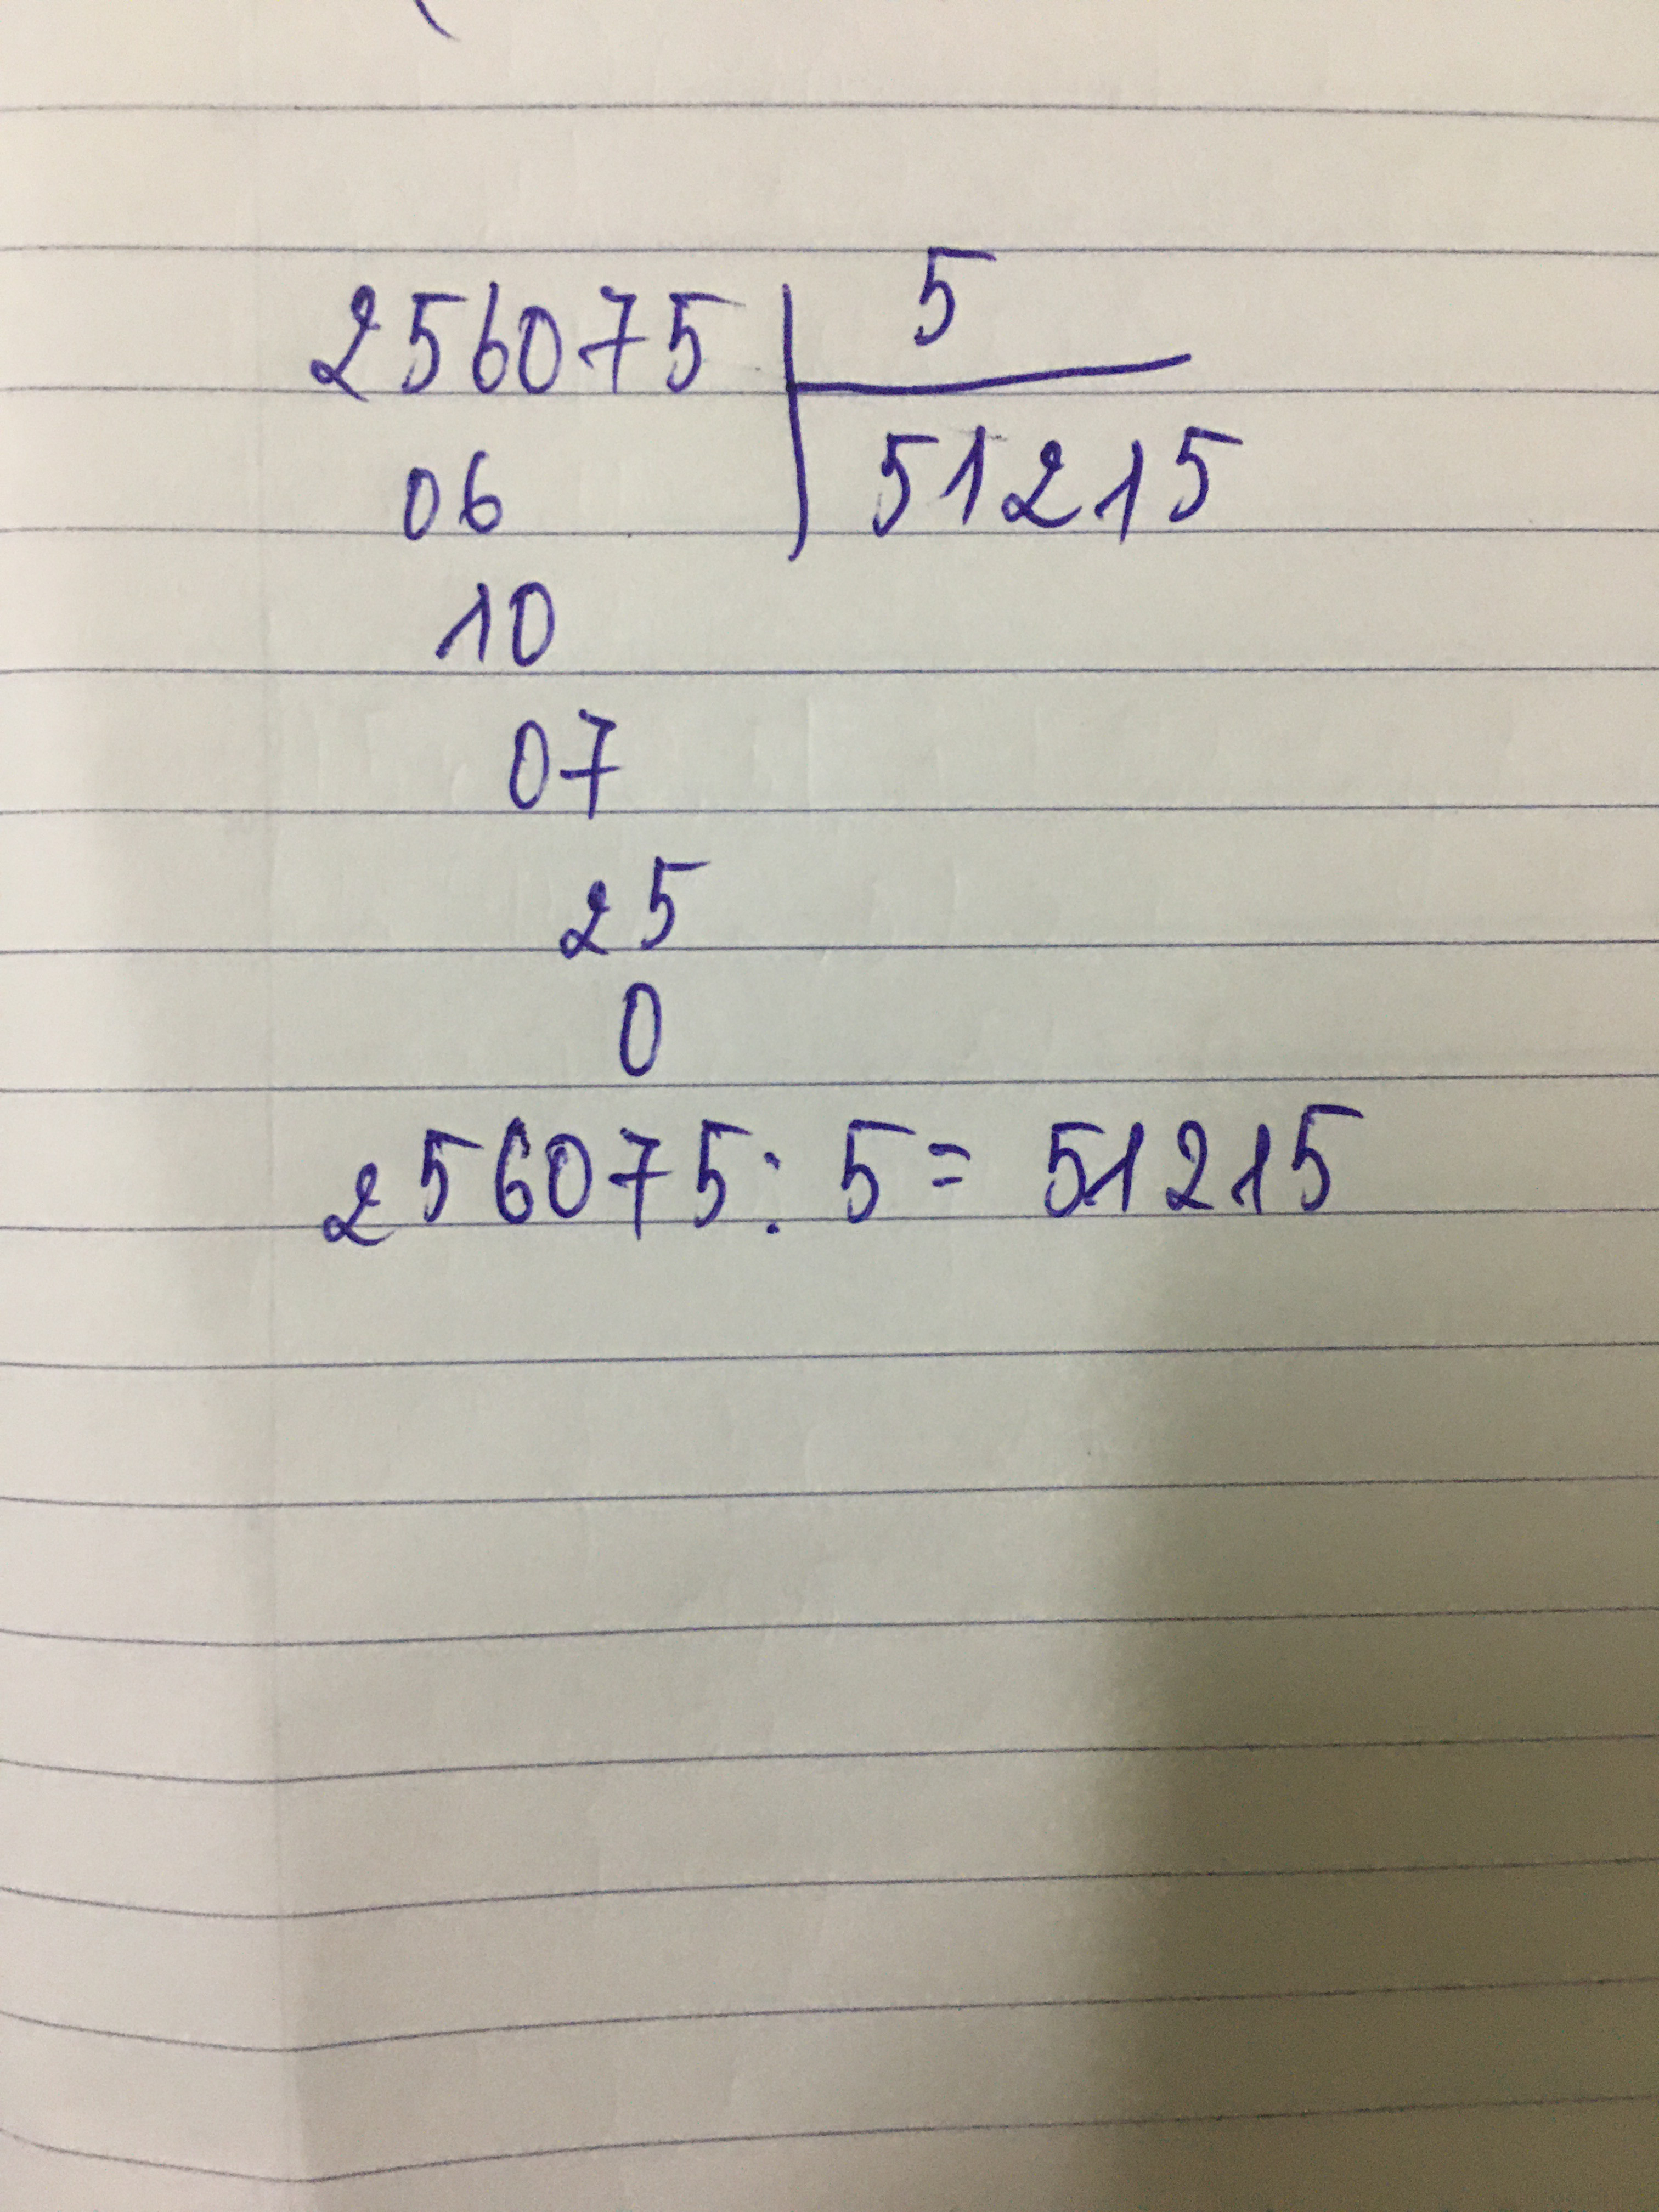 256075 5
06 51215
10
07
25
0
256075: 5= 51215